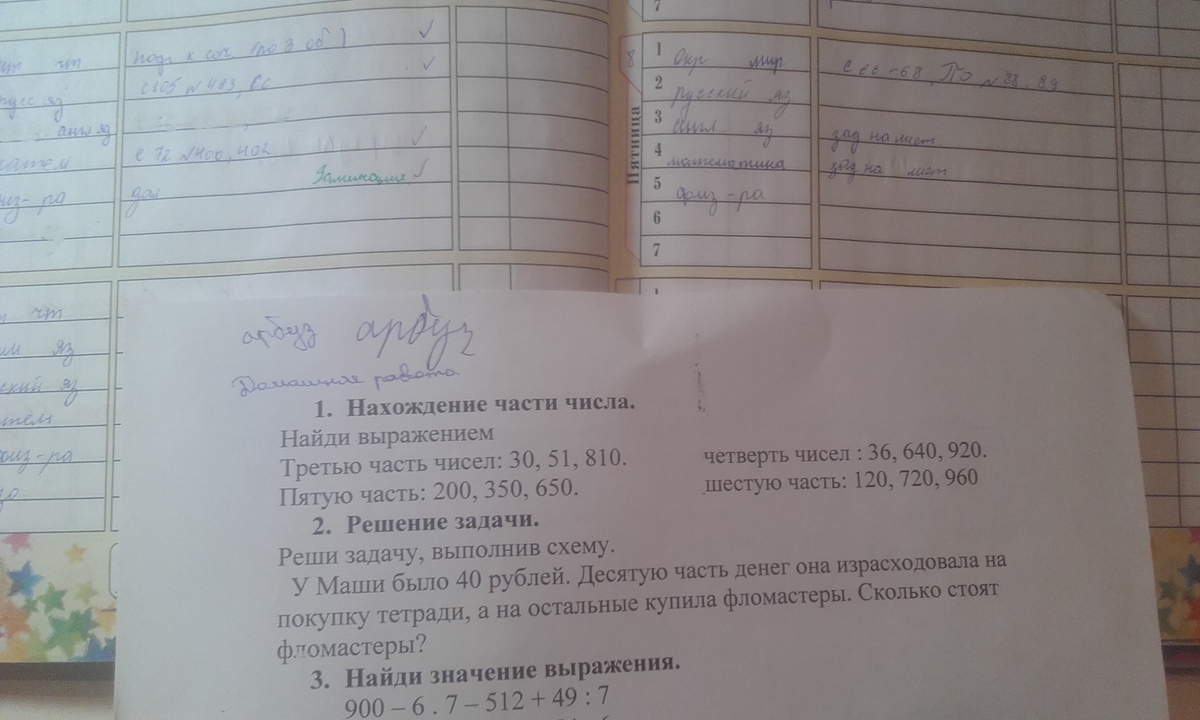 7
чт чт
подг к соч (по 3 об)
✓
русс яз
с 105 № 493, вс
✓
англ яз
матем
с 72 № 400, 402
✓
Замечание ✓
физ-ра
дол
8
Пятница
1 Окр мир
с 66-68, ПО № 88, 89
2 русский яз
3 англ яз
зад на лист.
4 математика
зад на лист
5 физ-ра
6
7
чт
яз
яз
физ-ра
арбуз арбуз
Домашняя работа
1. Нахождение части числа.
Найди выражением
Третью часть чисел: 30, 51, 810. четверть чисел : 36, 640, 920.
Пятую часть: 200, 350, 650. шестую часть: 120, 720, 960
2. Решение задачи.
Реши задачу, выполнив схему.
У Маши было 40 рублей. Десятую часть денег она израсходовала на
покупку тетради, а на остальные купила фломастеры. Сколько стоят
фломастеры?
3. Найди значение выражения.
900 – 6 . 7 – 512 + 49 : 7